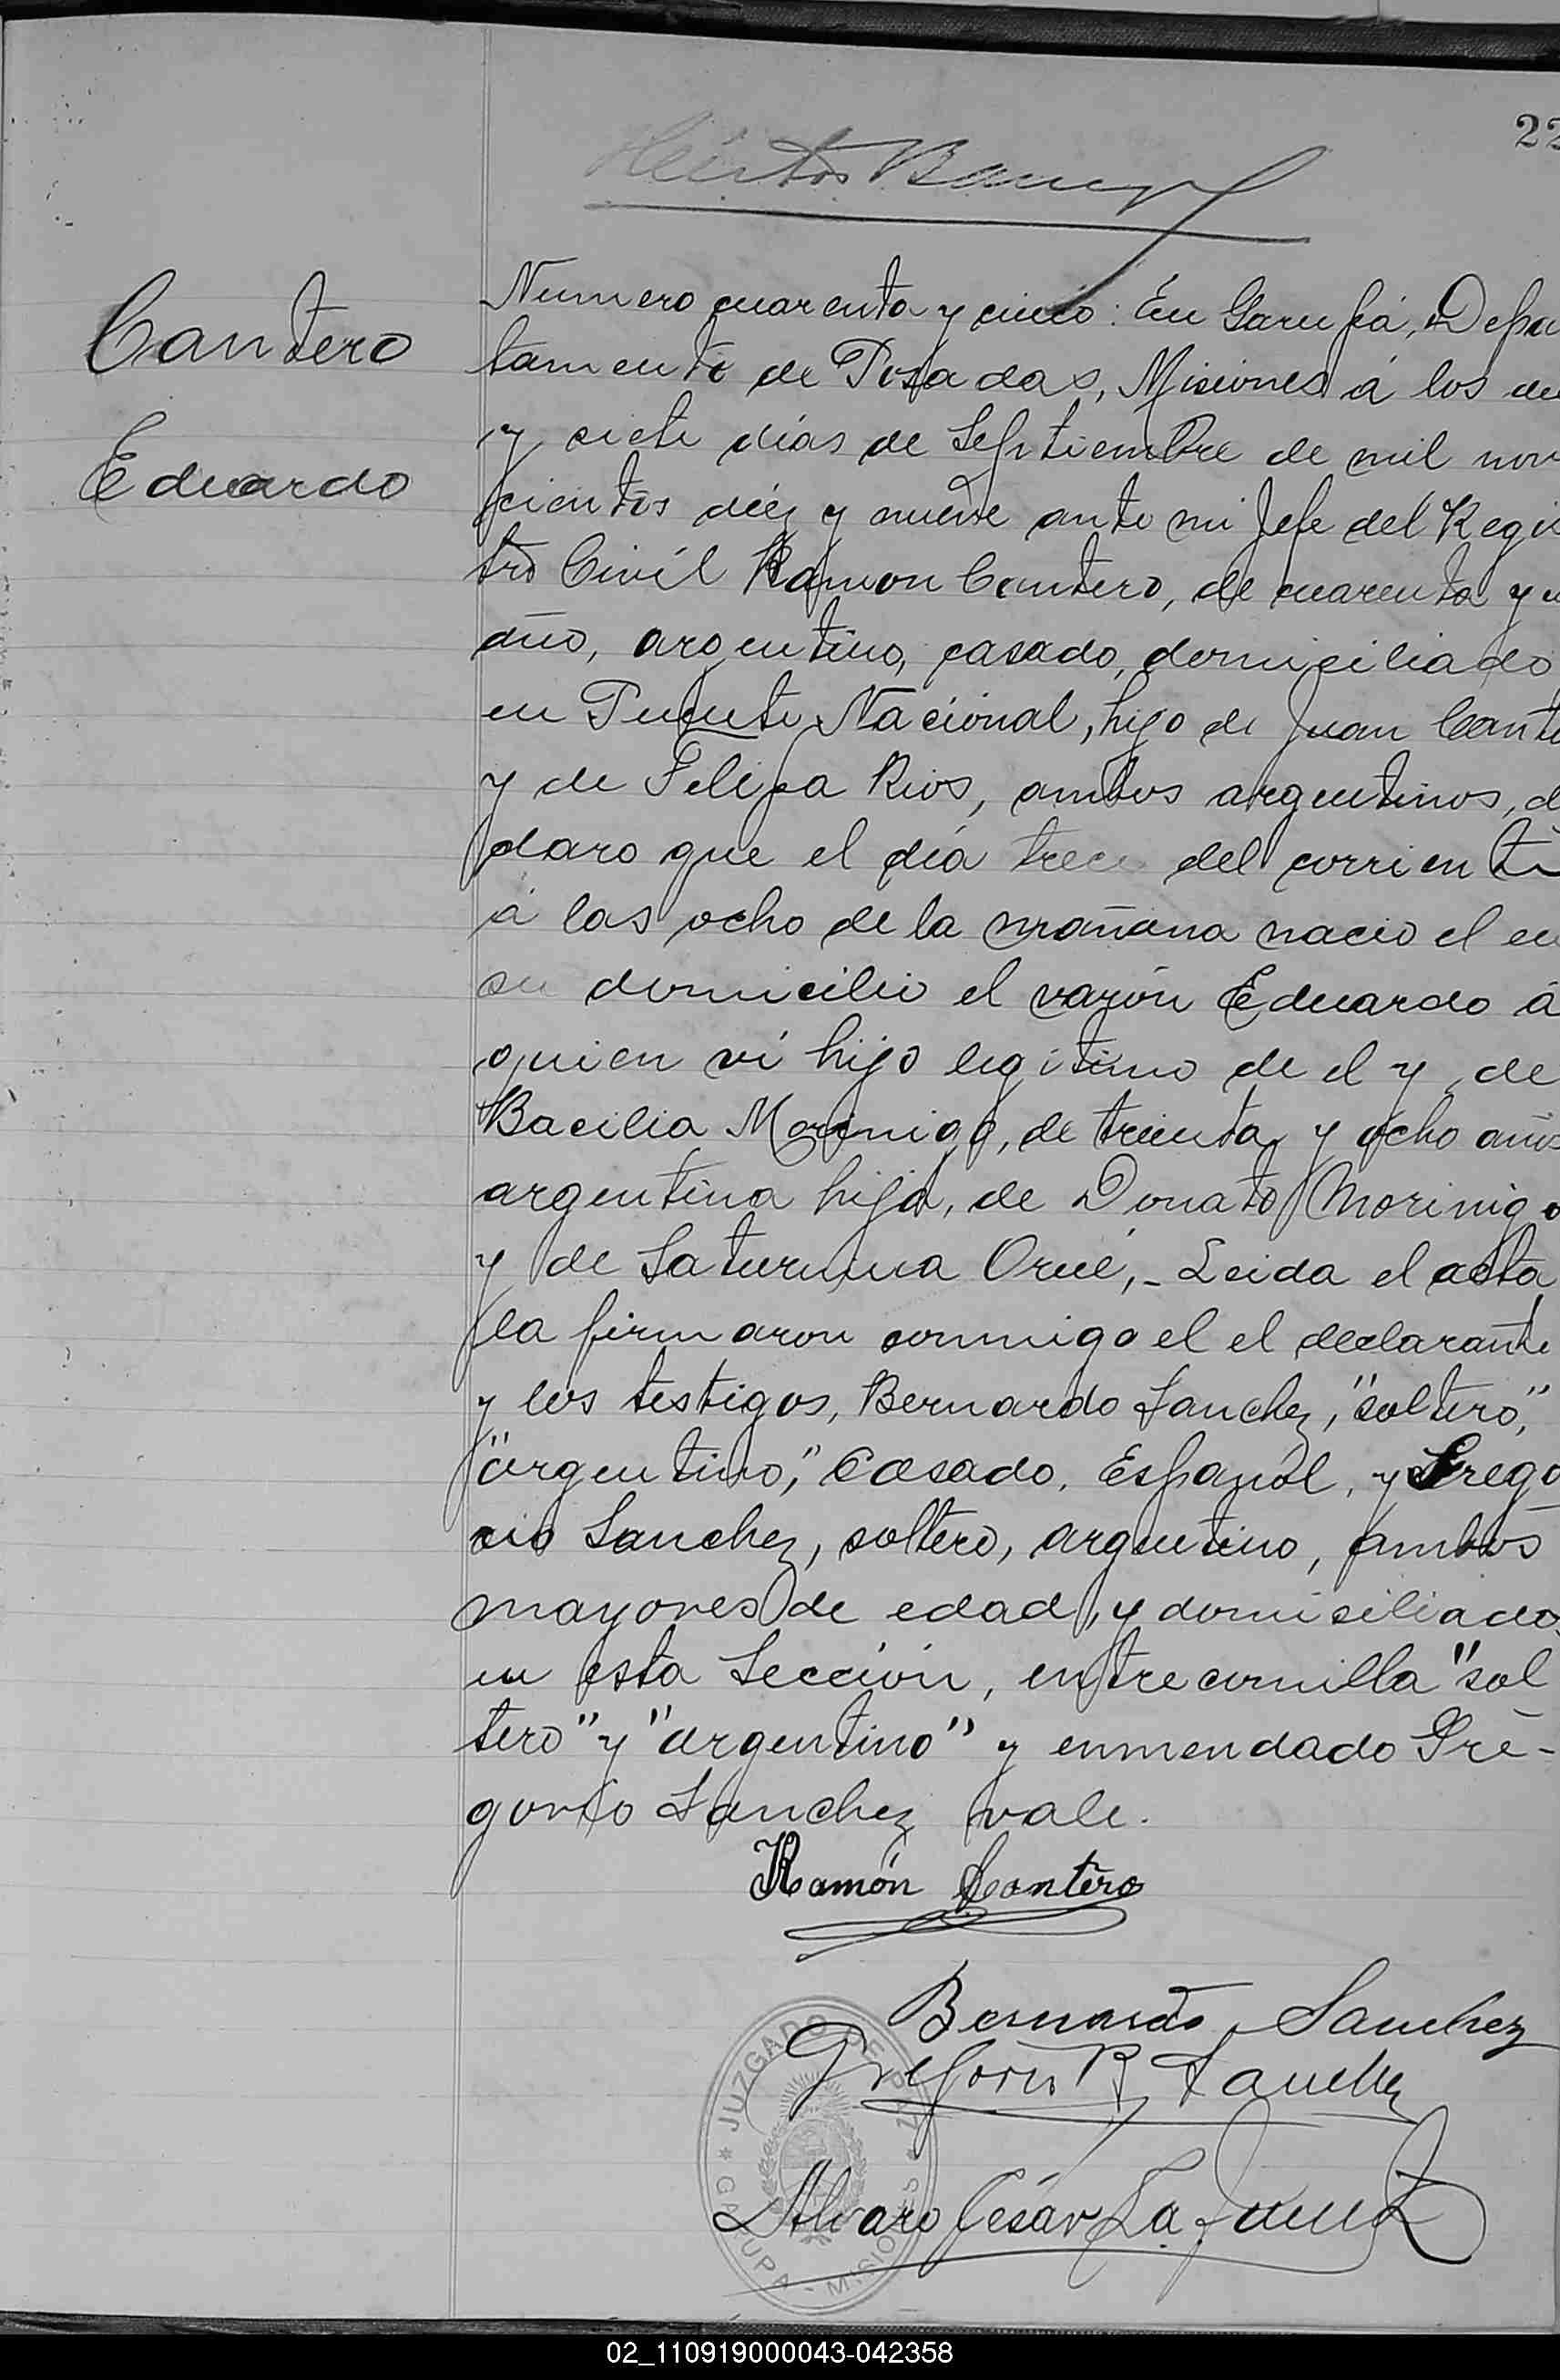 22
Cantero
Eduardo
Numero cuarenta y cinco: En Garupá, Depar
tamento de Posadas, Misiones á los
y siete días de Septiembre de mil nove
cientos diéz y nueve ante mi Jefe del Regis
tro Civíl Ramon Cantero, de cuarenta y
año, argentino, casado, domiciliado
en Puente Nacional, hijo de Juan Cante
y de Felipa Rios, ambos argentinos, d
claro que el día trece del corriente
á las ocho de la mañana nacio el en
su domicilio el varón Eduardo á
quien ví hijo legitimo de el y de
Bacilia Morinigo, de treinta y ocho años
argentina hija, de Donato Morinigo
y de Saturnina Orué,- Leida el acta
la firmaron conmigo el el declarante
y los testigos, Bernardo Sanchez, "soltero",
"argentino," Casado, Español, y Grego
rio Sanchez, soltero, argentino, ambos
mayores de edad, y domisiliados
en esta Sección, entrecomilla "sol
tero" y "argentino" y enmendado Gre-
gorio Sanchez vale.
Ramón Cantero
Bernardo Sanchez
Gregorio R. Sanchez
Alvaro César La
JUZGADO DE PAZ
GARUPA - MISIONES
02_110919000043-042358